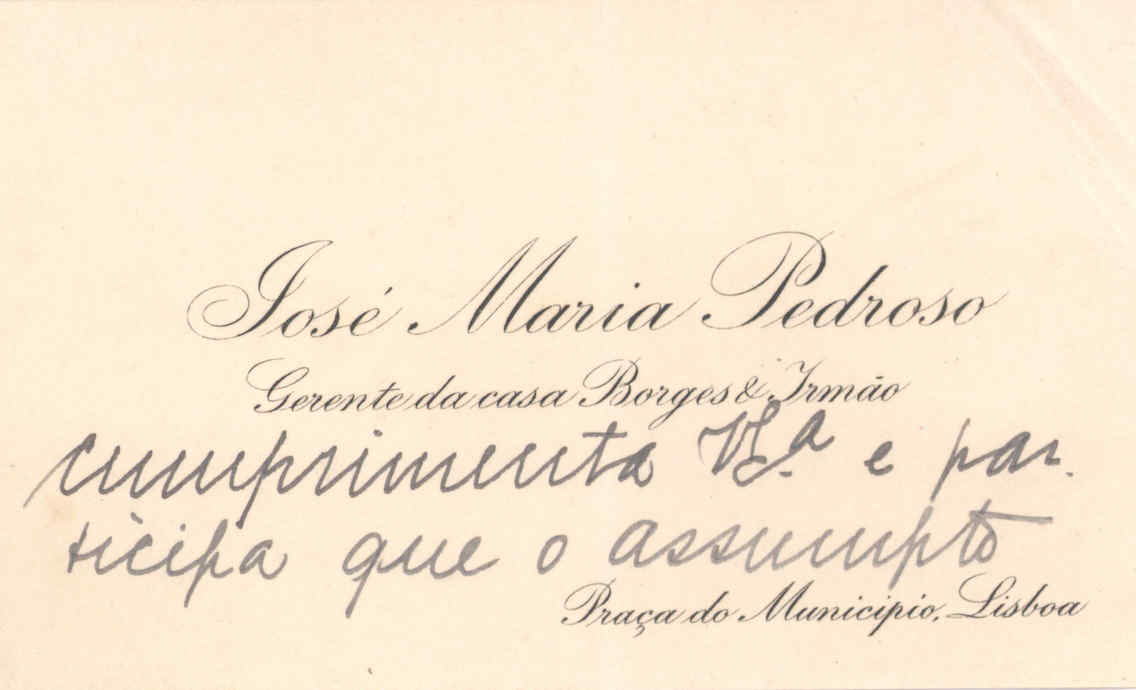 José Maria Pedroso
Gerente da casa Borges & Irmão
cumprimenta V.E.ª e par-
ticipa que o assumpto
Praça do Municipio, Lisboa